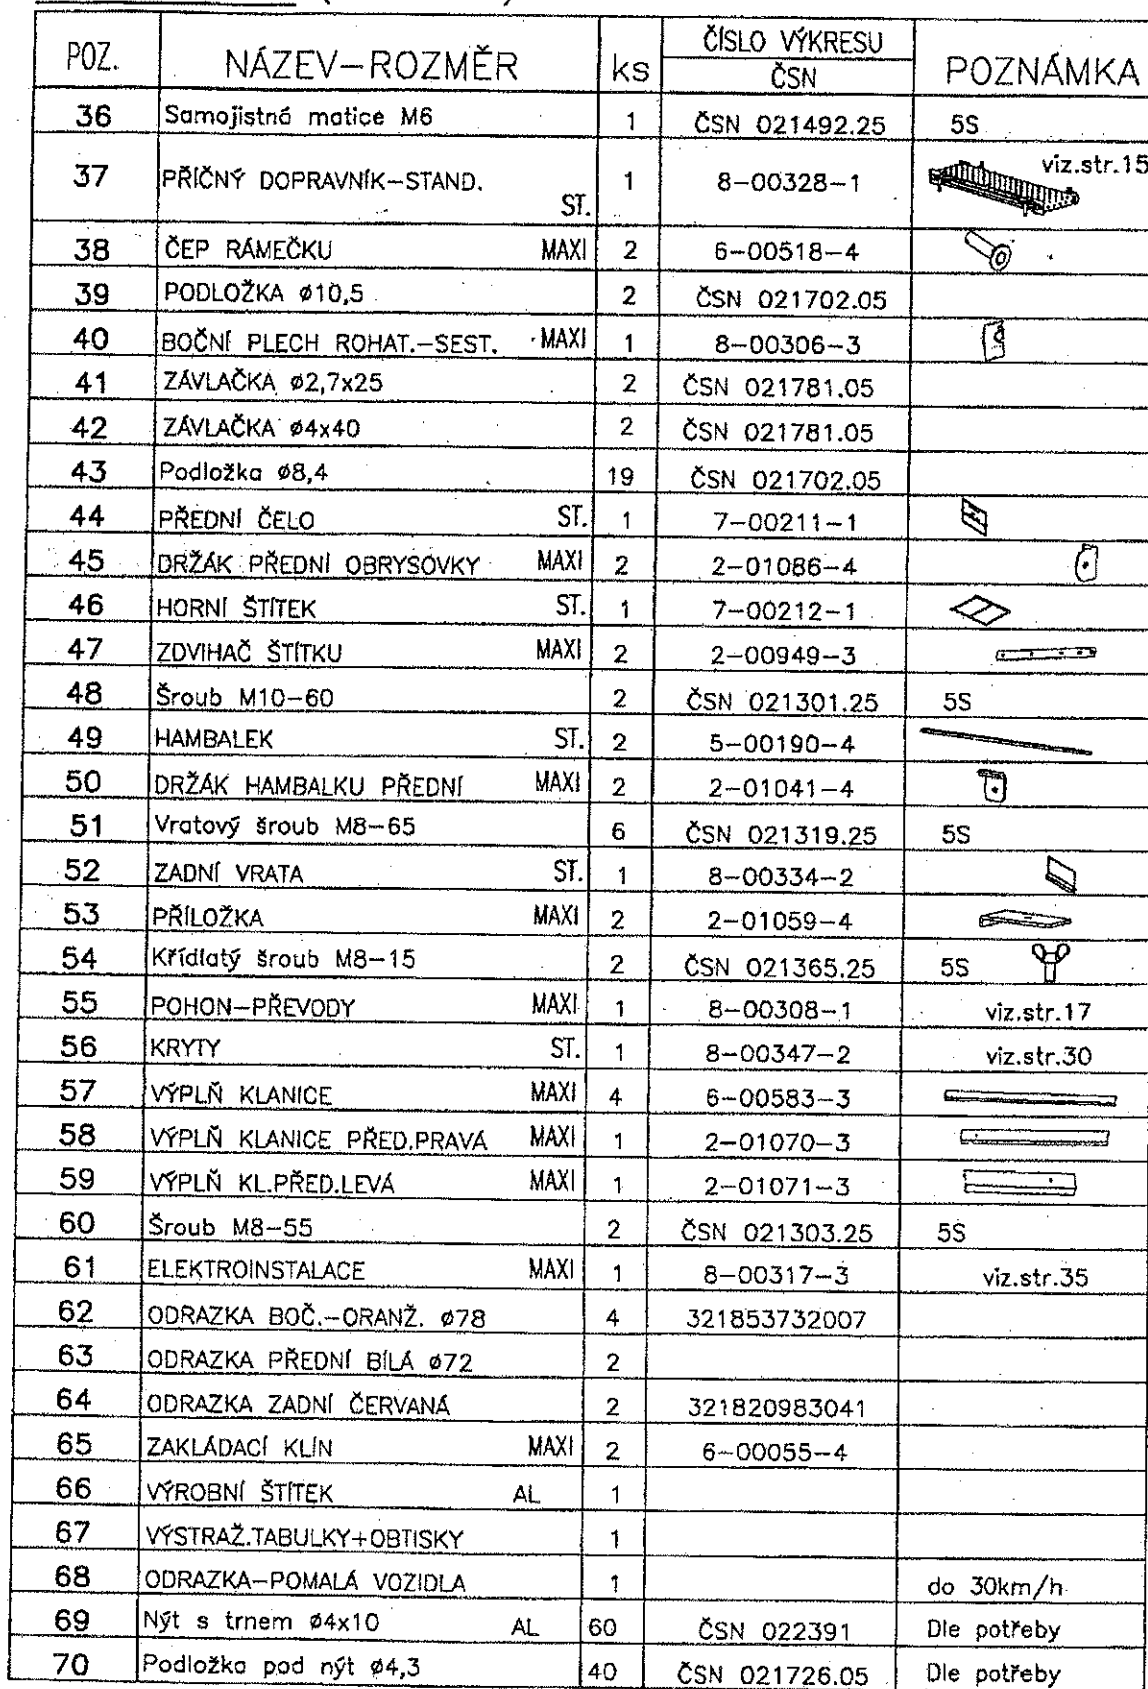 POZ. NÁZEV-ROZMĚR ks ČÍSLO VÝKRESU ČSN POZNÁMKA
36 Samojistná matice M6 1 ČSN 021492.25 5S
37 PŘÍČNÝ DOPRAVNÍK-STAND. ST. 1 8-00328-1 viz.str.15
38 ČEP RÁMEČKU MAXI 2 6-00518-4
39 PODLOŽKA ø10,5 2 ČSN 021702.05
40 BOČNÍ PLECH ROHAT.-SEST. MAXI 1 8-00306-3
41 ZÁVLAČKA ø2,7x25 2 ČSN 021781.05
42 ZÁVLAČKA ø4x40 2 ČSN 021781.05
43 Podložka ø8,4 19 ČSN 021702.05
44 PŘEDNÍ ČELO ST. 1 7-00211-1
45 DRŽÁK PŘEDNÍ OBRYSOVKY MAXI 2 2-01086-4
46 HORNÍ ŠTÍTEK ST. 1 7-00212-1
47 ZDVIHAČ ŠTÍTKU MAXI 2 2-00949-3
48 Šroub M10-60 2 ČSN 021301.25 5S
49 HAMBALEK ST. 2 5-00190-4
50 DRŽÁK HAMBALKU PŘEDNÍ MAXI 2 2-01041-4
51 Vratový šroub M8-65 6 ČSN 021319.25 5S
52 ZADNÍ VRATA ST. 1 8-00334-2
53 PŘÍLOŽKA MAXI 2 2-01059-4
54 Křídlatý šroub M8-15 2 ČSN 021365.25 5S
55 POHON-PŘEVODY MAXI 1 8-00308-1 viz.str.17
56 KRYTY ST. 1 8-00347-2 viz.str.30
57 VÝPLŇ KLANICE MAXI 4 6-00583-3
58 VÝPLŇ KLANICE PŘED.PRAVÁ MAXI 1 2-01070-3
59 VÝPLŇ KL.PŘED.LEVÁ MAXI 1 2-01071-3
60 Šroub M8-55 2 ČSN 021303.25 5S
61 ELEKTROINSTALACE MAXI 1 8-00317-3 viz.str.35
62 ODRAZKA BOČ.-ORANŽ. ø78 4 321853732007
63 ODRAZKA PŘEDNÍ BÍLÁ ø72 2
64 ODRAZKA ZADNÍ ČERVANÁ 2 321820983041
65 ZAKLÁDACÍ KLÍN MAXI 2 6-00055-4
66 VÝROBNÍ ŠTÍTEK AL 1
67 VÝSTRAŽ.TABULKY+OBTISKY 1
68 ODRAZKA-POMALÁ VOZIDLA 1 do 30km/h
69 Nýt s trnem ø4x10 AL 60 ČSN 022391 Dle potřeby
70 Podložka pod nýt ø4,3 40 ČSN 021726.05 Dle potřeby